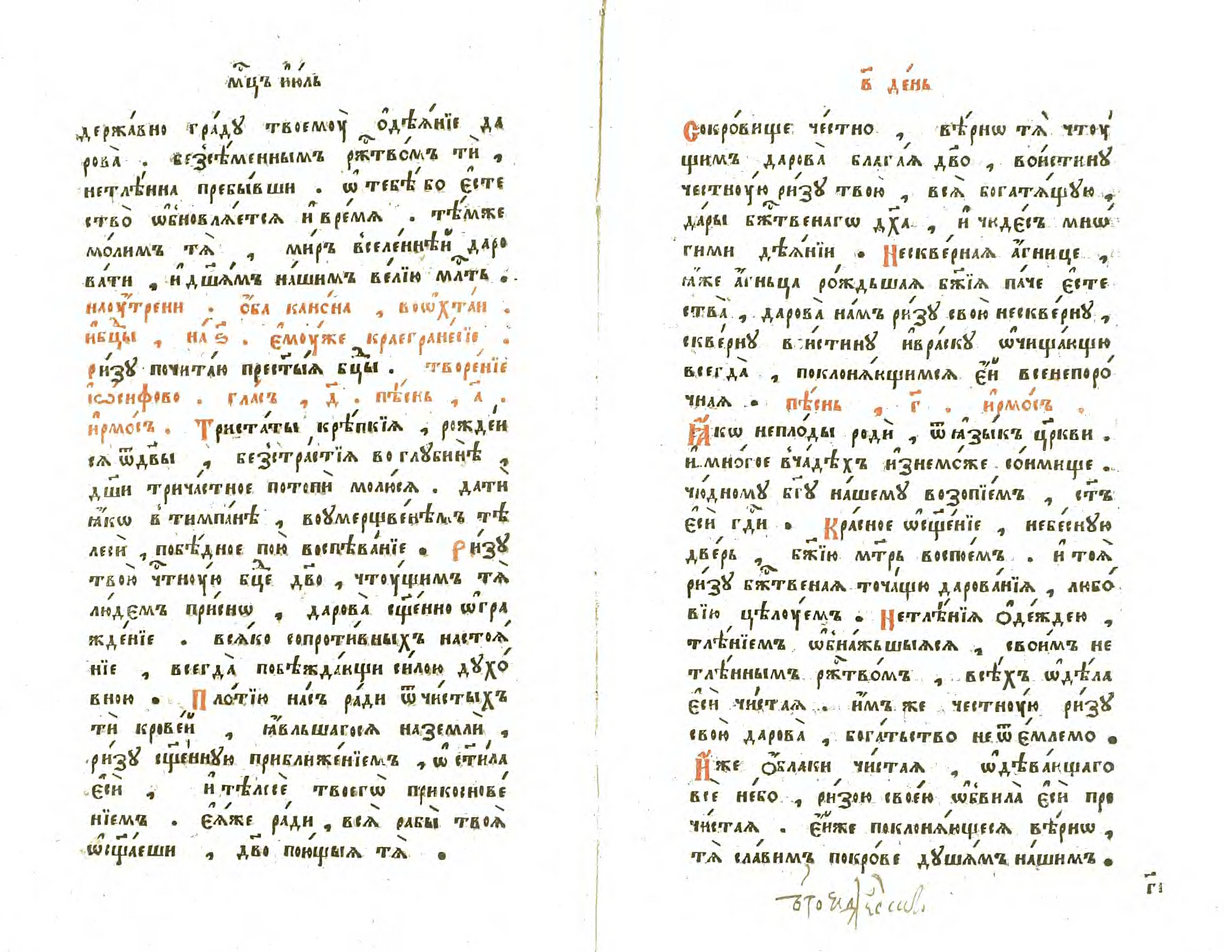 мⷭ҇цъ і҆ю́ль
держа́вно гра́дꙋ твоемоу̀ ѻ҆дѣѧ́нїе да
рова̀ . безсѣ́меннымъ ржⷭ҇тво́мъ тѝ ,
нетлѣ́нна пребы́вши . ѡ҆ тебѣ́ бо є҆сте
ство̀ ѡ҆бновлѧ́етсѧ и҆ вре́мѧ . тѣ́мже
мо́лимъ тѧ̀ , ми́ръ вселе́ннѣй даро
ва́ти , и҆ дш҃а́мъ на́шимъ ве́лїю млⷭ҇ть .
наоу́трени . ѻ҆́ба кано́на , воѡ҆хта́и .
и҆ бцⷣы , на ѕ҃ . є҆моу́же краегране́сїе .
ри́зꙋ почита́ю прест҃ы́ѧ бцⷣы . творе́нїе
і҆ѡ́сифово . гла́съ , д҃ . пѣ́снь , а҃ .
и҆рмо́съ . Триста́ты крѣ́пкїѧ , рожде́й
сѧ ѿ дв҃ы , безстра́стїѧ во глꙋбинѣ̀ ,
дш҃и тричастное потопѝ молю́сѧ . да тѝ
ꙗ҆́кѡ в тимпа́нѣ , воумерщве́нїемъ тѣ
лесѝ , побѣ́дное пою̀ воспѣва́нїе . Ри́зꙋ
твою̀ чⷭ҇тноую бцⷣе дв҃о , чтоу́щимъ тѧ̀
лю́демъ при́снѡ , дарова̀ сщ҃е́нно ѡ҆гра
жде́нїе . всѧ́ко сопроти́вныхъ настоѧ́
нїе , всегда̀ побѣжда́ющи си́лою дꙋхо́
вною . Пло́тїю на́съ ра́ди ѿ чи́стыхъ
тѝ крове́й , ꙗ҆́вльшагосѧ на землѝ ,
ри́зꙋ сщ҃е́ннꙋю приближе́нїемъ , ѡ҆ст҃и́ла
є҆сѝ , и҆ тѣлесѐ твоегѡ̀ прикоснове́
нїемъ . є҆ѧ́же ра́ди , всѧ̀ рабы̀ твоѧ̀
ѡ҆сщ҃а́еши , дв҃о пою́щыѧ тѧ̀ .
в҃ де́нь
Сокро́вище че́стно , вѣ́рнѡ тѧ̀ чтоу́
щимъ дарова̀ блага́ѧ дв҃о , вои́стинꙋ
честноу́ю ри́зꙋ твою̀ , всѧ̀ богатѧ́щꙋю ,
да́ры бжⷭ҇твенагѡ дх҃а , и҆ чюде́съ мнѡ́
гими дѣѧ́нїи . Нескве́рнаѧ а҆́гнице ,
ꙗ҆́же а҆́гньца ро́ждьшаѧ бж҃їѧ па́че є҆сте
ства̀ , дарова̀ на́мъ ри́зꙋ свою̀ нескве́рнꙋ ,
скве́рнꙋ во́истинꙋ и҆ вра́скꙋ ѡ҆чища́ющю
всегда̀ , поклонѧ́ющимсѧ є҆́й всенепоро́
чнаѧ . пѣ́снь , г҃ . и҆рмо́съ .
Ꙗ҆́кѡ непло́ды родѝ , ѿ ꙗ҆зы́къ цр҃кви .
и҆ мно́гое в ча́дѣхъ и҆знемо́же со́нмище .
чю́дномꙋ бг҃ꙋ на́шемꙋ возопїе́мъ , ст҃ъ
є҆сѝ гдⷭ҇и . Кра́сное ѡ҆сщ҃е́нїе , небе́снꙋю
две́рь , бж҃їю мт҃рь воспое́мъ . и҆ тоѧ̀
ри́зꙋ бжⷭ҇твенаѧ точа́щю дарова́нїѧ , любо́
вїю цѣлоу́емъ . Нетлѣ́нїѧ ѻ҆де́ждею ,
тлѣ́нїемъ ѡ҆бна́жьшыѧсѧ , свои́мъ не
тлѣ́ннымъ ржⷭ҇тво́мъ , всѣ́хъ ѡ҆дѣ́ла
є҆сѝ чи́стаѧ . и҆́мъ же честноу́ю ри́зꙋ
свою̀ дарова̀ , бога́тьство не ѿе́млемо .
И҆́же ѻ҆́блаки чи́стаѧ , ѡ҆дѣва́ющаго
всѐ не́бо , ри́зою свое́ю ѡ҆бвила̀ є҆сѝ пре
чи́стаѧ . є҆́йже поклонѧ́ющесѧ вѣ́рнѡ ,
тѧ̀ сла́вимъ покро́ве дꙋша́мъ на́шимъ .
г҃і